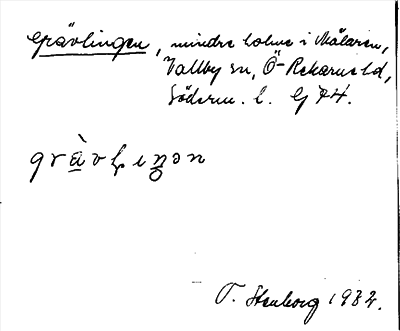 Grävlingen, mindre holme i Mälaren,
Vallby sn, Ö-Rekarne hd,
Söderm. l. G 74.
T. Stenborg 1932.